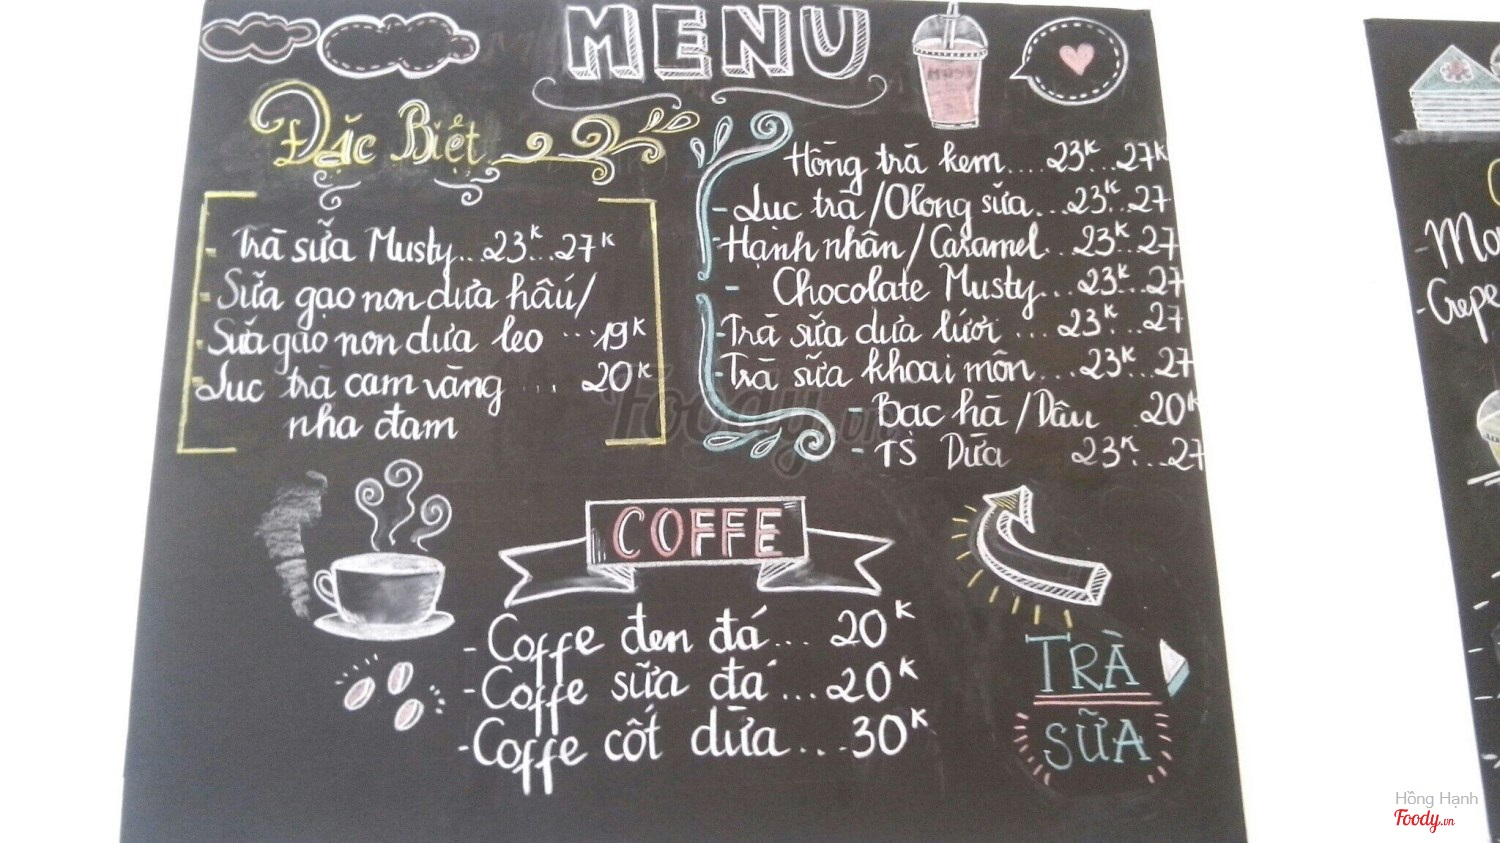 MENU
Đặc Biệt
- Trà sữa Musty...23K...27K
- Sữa gạo non dưa hấu/
- Sữa gạo non dưa leo ...19K
- Lục trà cam vàng ... 20K
nha đam
Hồng trà kem....23K...27K
- Lục trà/Olong sữa...23K...27
- Hạnh nhân/Caramel...23K...27
- Chocolate Musty...23K...27
- Trà sữa dưa lưới ...23K...27
- Trà sữa khoai môn...23K...27
- Bạc hà/Dâu 20K
- TS Dừa 23K...27
COFFE
- Coffe đen đá... 20K
- Coffe sữa đá...20K
- Coffe cốt dừa...30K
TRÀ
SỮA
- Crepe
Foody.vn
Hồng Hạnh
Foody.vn